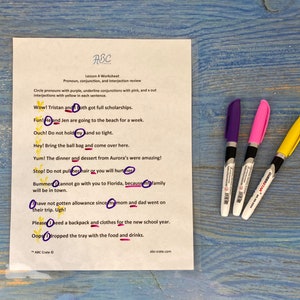 ABC
Lesson 4 Worksheet
Pronoun, conjunction, and interjection review
Circle pronouns with purple, underline conjunctions with pink, and x out
interjections with yellow in each sentence.
Wow! Tristan and I both got full scholarships.
Fun! He and Jen are going to the beach for a week.
Ouch! Do not hold my hand so tight.
Hey! Bring the ball bag and come over here.
Yum! The dinner and dessert from Aurora's were amazing!
Stop! Do not pull her hair or you will hurt her.
Bummer! I cannot go with you to Florida, because my family
will be in town.
I have not gotten allowance since my mom and dad went on
their trip. Ugh!
Please! I need a backpack and clothes for the new school year.
Oops! I dropped the tray with the food and drinks.
™ ABC Crate ©
abc-crate.com